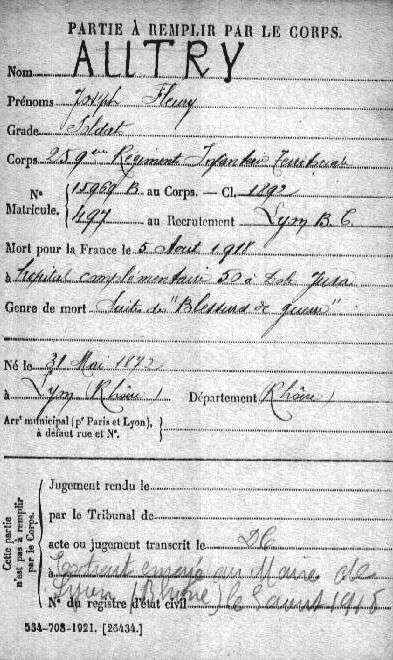 PARTIE À REMPLIR PAR LE CORPS.
Nom AUTRY
Prénoms Joseph Fleury
Grade Soldat
Corps 259ème Régiment Infanterie Territoriale
N° Matricule. { 15969 B. au Corps. — Cl. 1892
497 au Recrutement Lyon B. C.
Mort pour la France le 5 Aout 1918
à hôpital complémentaire 50 à Dole Jura
Genre de mort Suites de "Blessures de guerre"
Né le 31 Mai 1872
à Lyon (Rhône) Département (Rhône)
Arrt municipal (pr Paris et Lyon), à défaut rue et N°. }
Cette partie n'est pas à remplir par le Corps. {
Jugement rendu le
par le Tribunal de
acte ou jugement transcrit le
à Extrait envoyé au Maire de
Lyon (Rhône) le 8 aout 1918
N° du registre d'état civil
534-708-1921. [26434.]